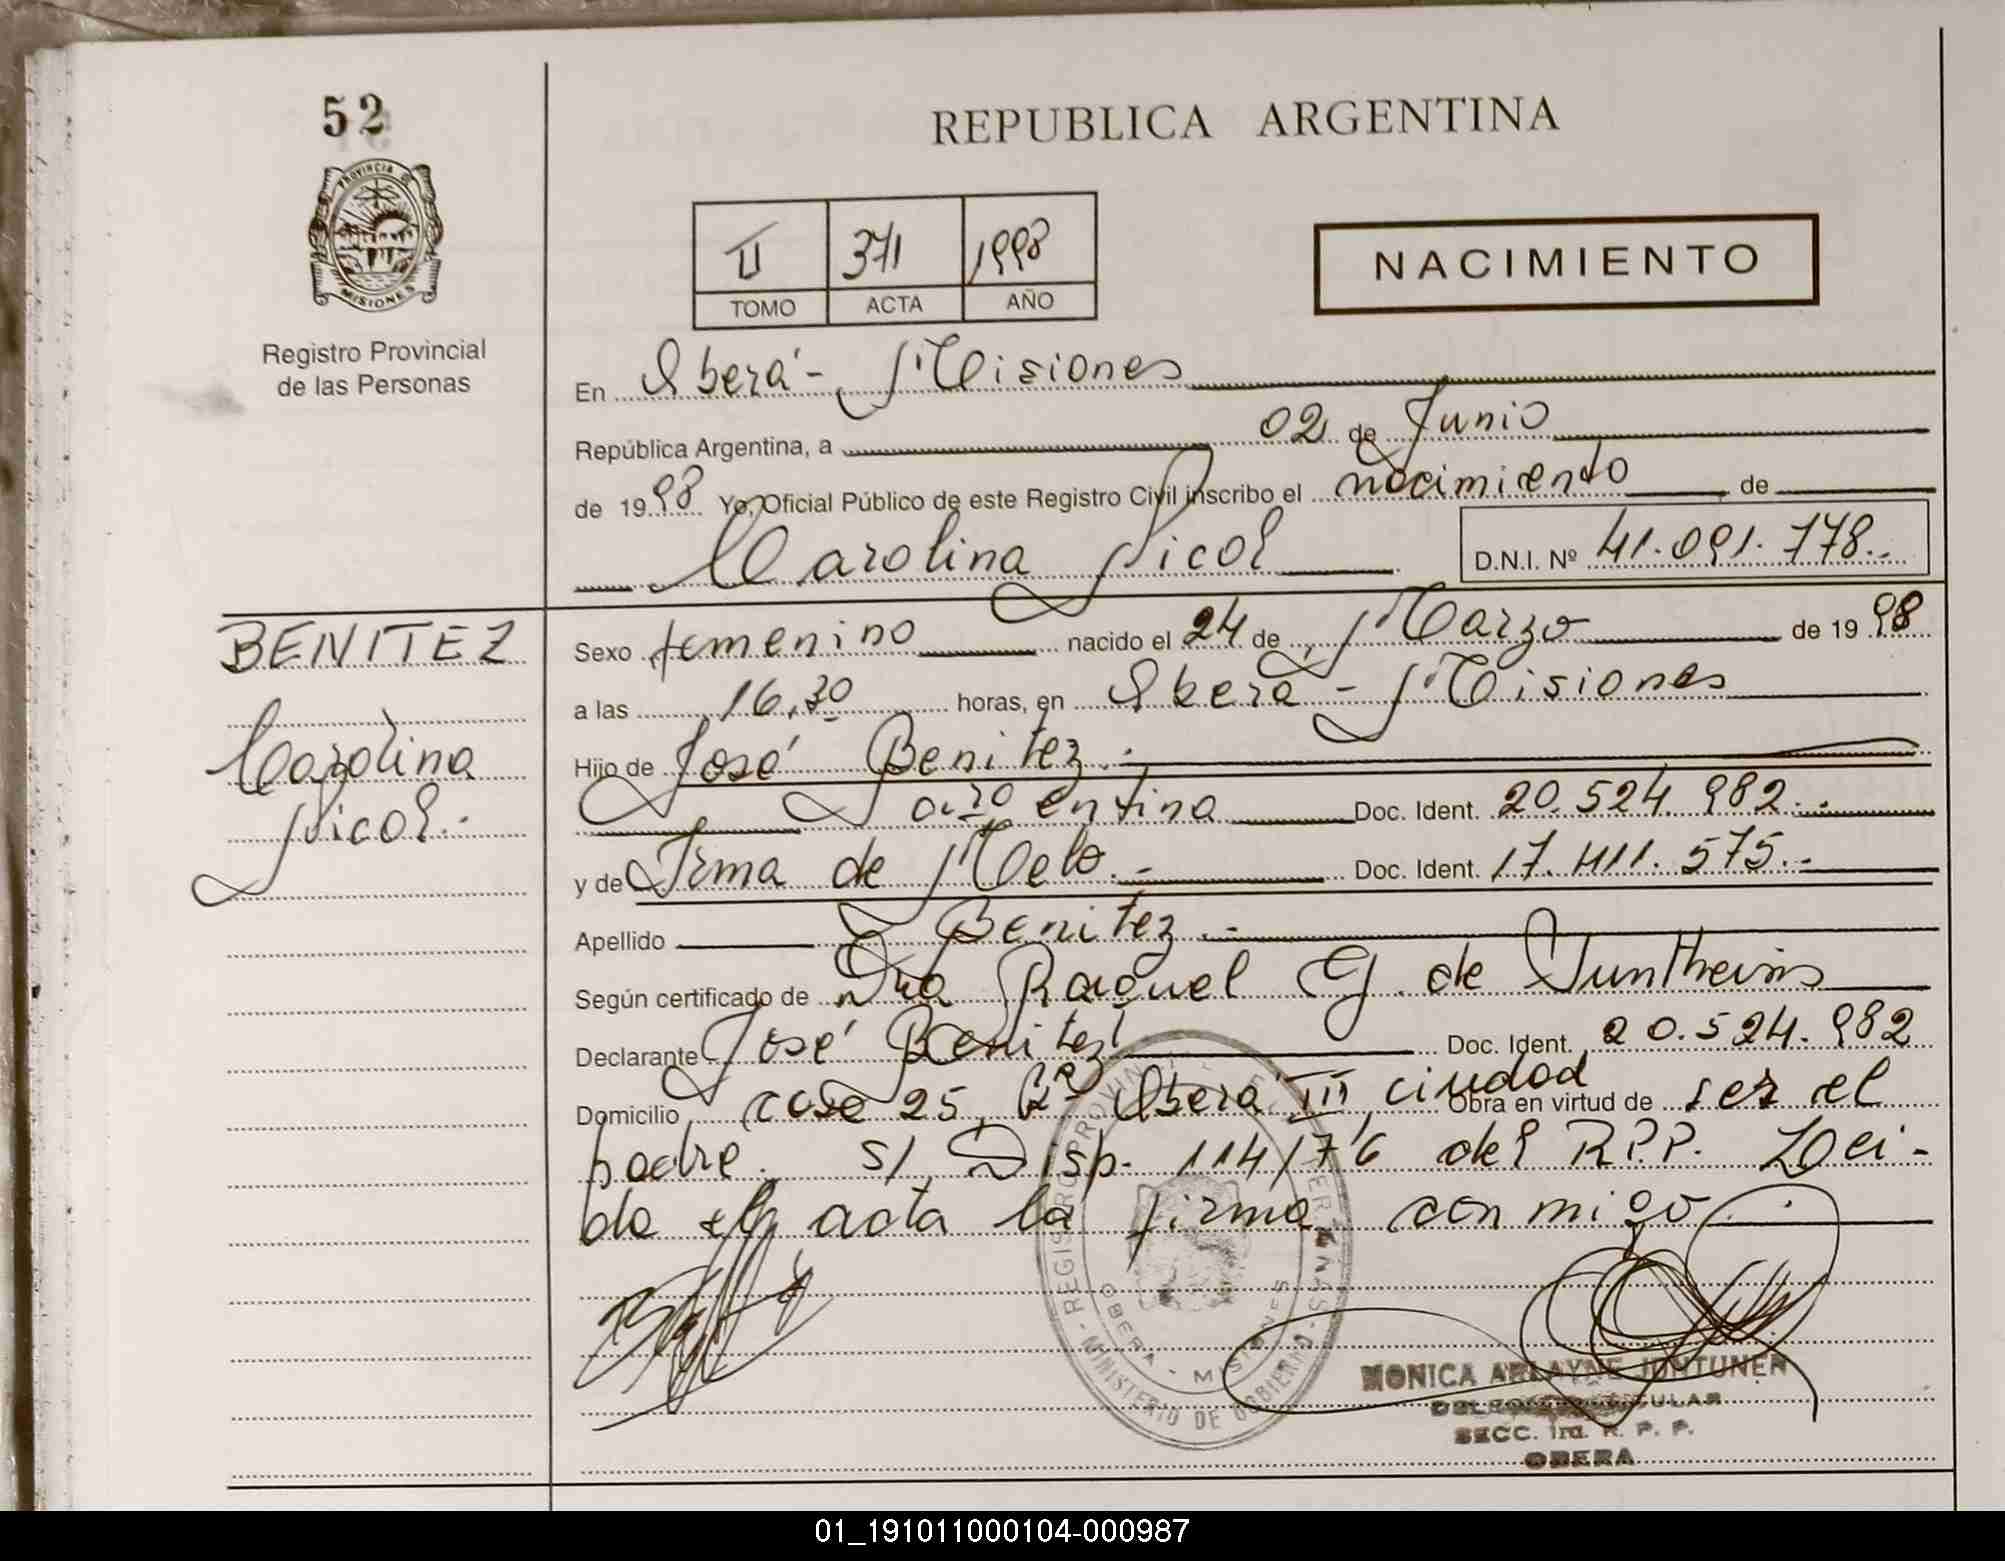 52
REPUBLICA ARGENTINA
PROVINCIA DE
MISIONES
Registro Provincial
de las Personas
II 371 1998
TOMO ACTA AÑO
NACIMIENTO
En Oberá - Misiones
República Argentina, a 02 de Junio
de 1998 Yo, Oficial Público de este Registro Civil inscribo el nacimiento de
Carolina Nicol D.N.I. Nº 41.091.778.-
BENITEZ
Carolina
Nicol.-
Sexo femenino nacido el 24 de Marzo de 1998
a las 16,30 horas, en Oberá - Misiones
Hijo de José Benitez.-
argentina Doc. Ident. 20.524.982.-
y de Irma de Melo.- Doc. Ident. 17.411.575.-
Apellido Benitez.-
Según certificado de Dra Raquel G. de
Declarante José Benitez Doc. Ident. 20.524.982
Domicilio casa 25, Oberá III, ciudad Obra en virtud de ser el
padre. S/ Disp. 114/76 del R.P.P. Lei-
da el acta la firma conmigo.
REGISTRO PROVINCIAL DE LAS PERSONAS - MINISTERIO DE GOBIERNO
OBERA - MISIONES
MONICA ARLAYNE JUNTUNEN
SECC. 1ra. R. P. P.
OBERA
01_191011000104-000987